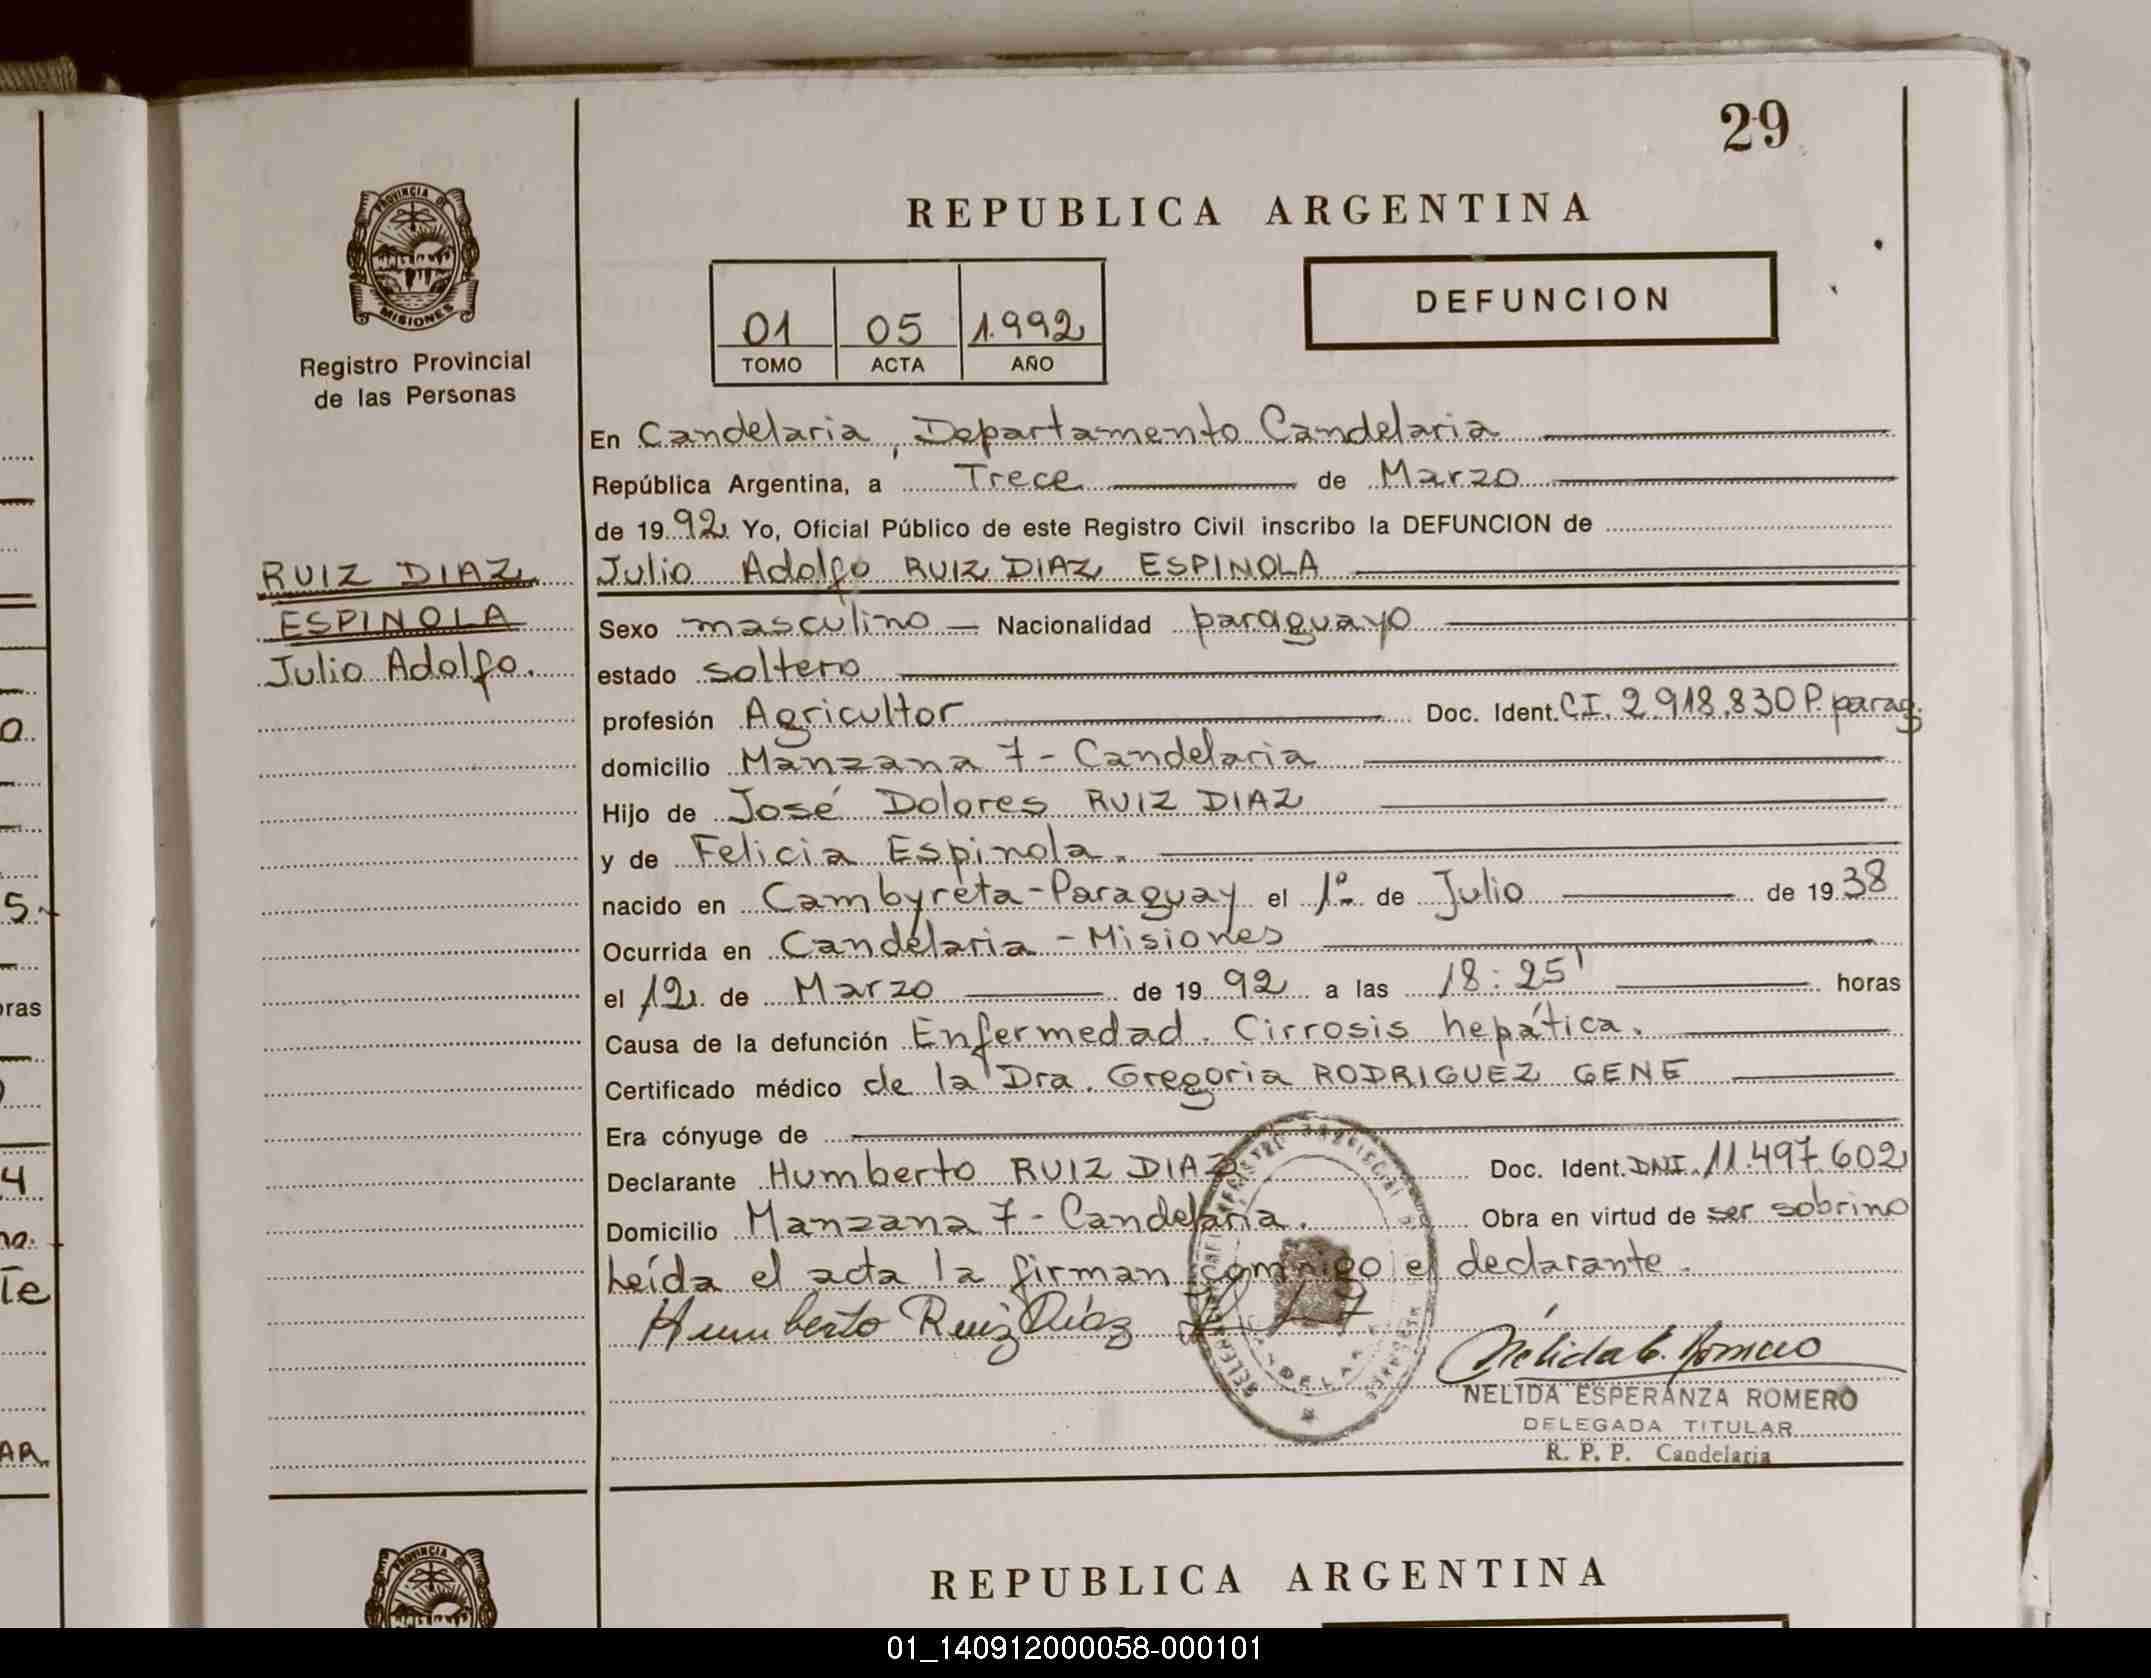 29
PROVINCIA DE
MISIONES
Registro Provincial
de las Personas
REPUBLICA ARGENTINA
01 05 1.992
TOMO ACTA AÑO
DEFUNCION
En Candelaria, Departamento Candelaria
República Argentina, a Trece de Marzo
de 19 92 Yo, Oficial Público de este Registro Civil inscribo la DEFUNCION de
RUIZ DIAZ
ESPINOLA
Julio Adolfo.
Julio Adolfo RUIZ DIAZ ESPINOLA
Sexo masculino — Nacionalidad paraguayo
estado soltero
profesión Agricultor Doc. Ident. CI. 2.918.830 P. parag.
domicilio Manzana 7 - Candelaria
Hijo de José Dolores RUIZ DIAZ
y de Felicia Espinola.
nacido en Cambyreta - Paraguay el 1º de Julio de 19 38
Ocurrida en Candelaria - Misiones
el 12 de Marzo de 19 92 a las 18:25' horas
Causa de la defunción Enfermedad. Cirrosis hepática.
Certificado médico de la Dra. Gregoria RODRIGUEZ GENE
Era cónyuge de
Declarante Humberto RUIZ DIAZ Doc. Ident. DNI. 11.497.602
Domicilio Manzana 7 - Candelaria. Obra en virtud de ser sobrino
Leída el acta la firman conmigo el declarante.
Humberto Ruiz Díaz
Nélida E. Romero
NELIDA ESPERANZA ROMERO
DELEGADA TITULAR
R. P. P. Candelaria
PROVINCIA DE
REPUBLICA ARGENTINA
01_140912000058-000101